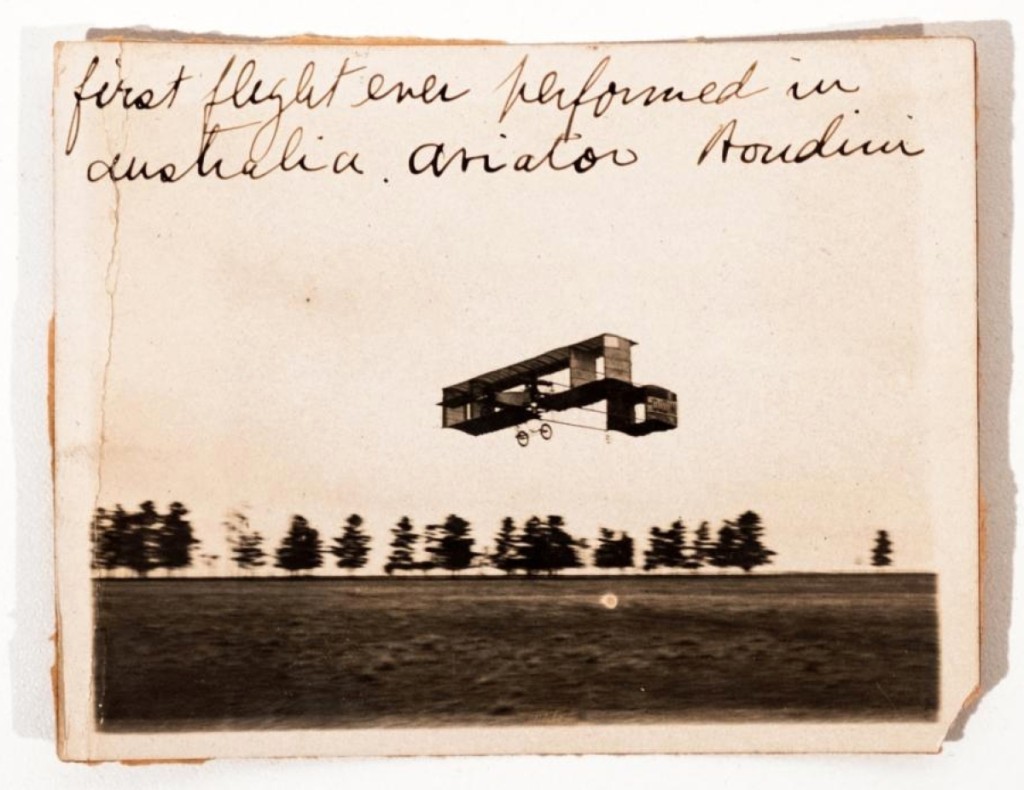 first flight ever performed in
australia. aviator Houdini